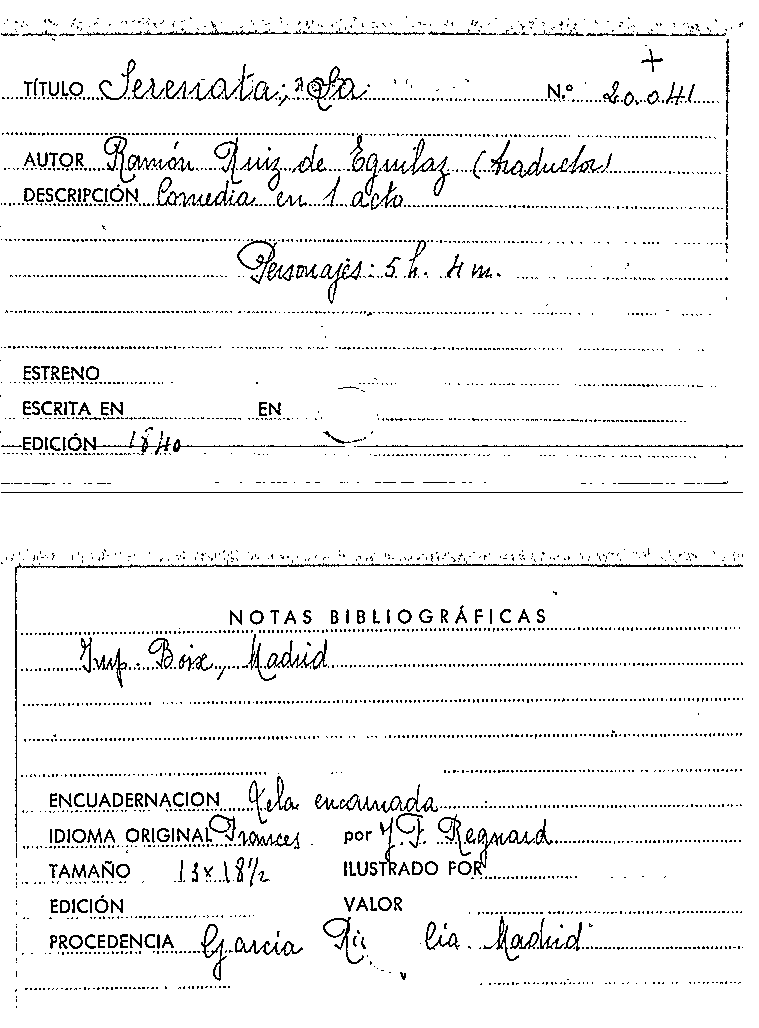 +
TÍTULO Serenata; La Nº 20.041
AUTOR Ramón Ruiz de Eguilaz (traductor)
DESCRIPCIÓN Comedia en 1 acto
Personajes: 5 h. 4 m.
ESTRENO
ESCRITA EN EN
EDICIÓN 1840
NOTAS BIBLIOGRÁFICAS
Imp. Boix, Madrid
ENCUADERNACION Tela encarnada
IDIOMA ORIGINAL Frances por J.F. Regnard
TAMAÑO 13x18½ ILUSTRADO POR
EDICIÓN VALOR
PROCEDENCIA García Madrid